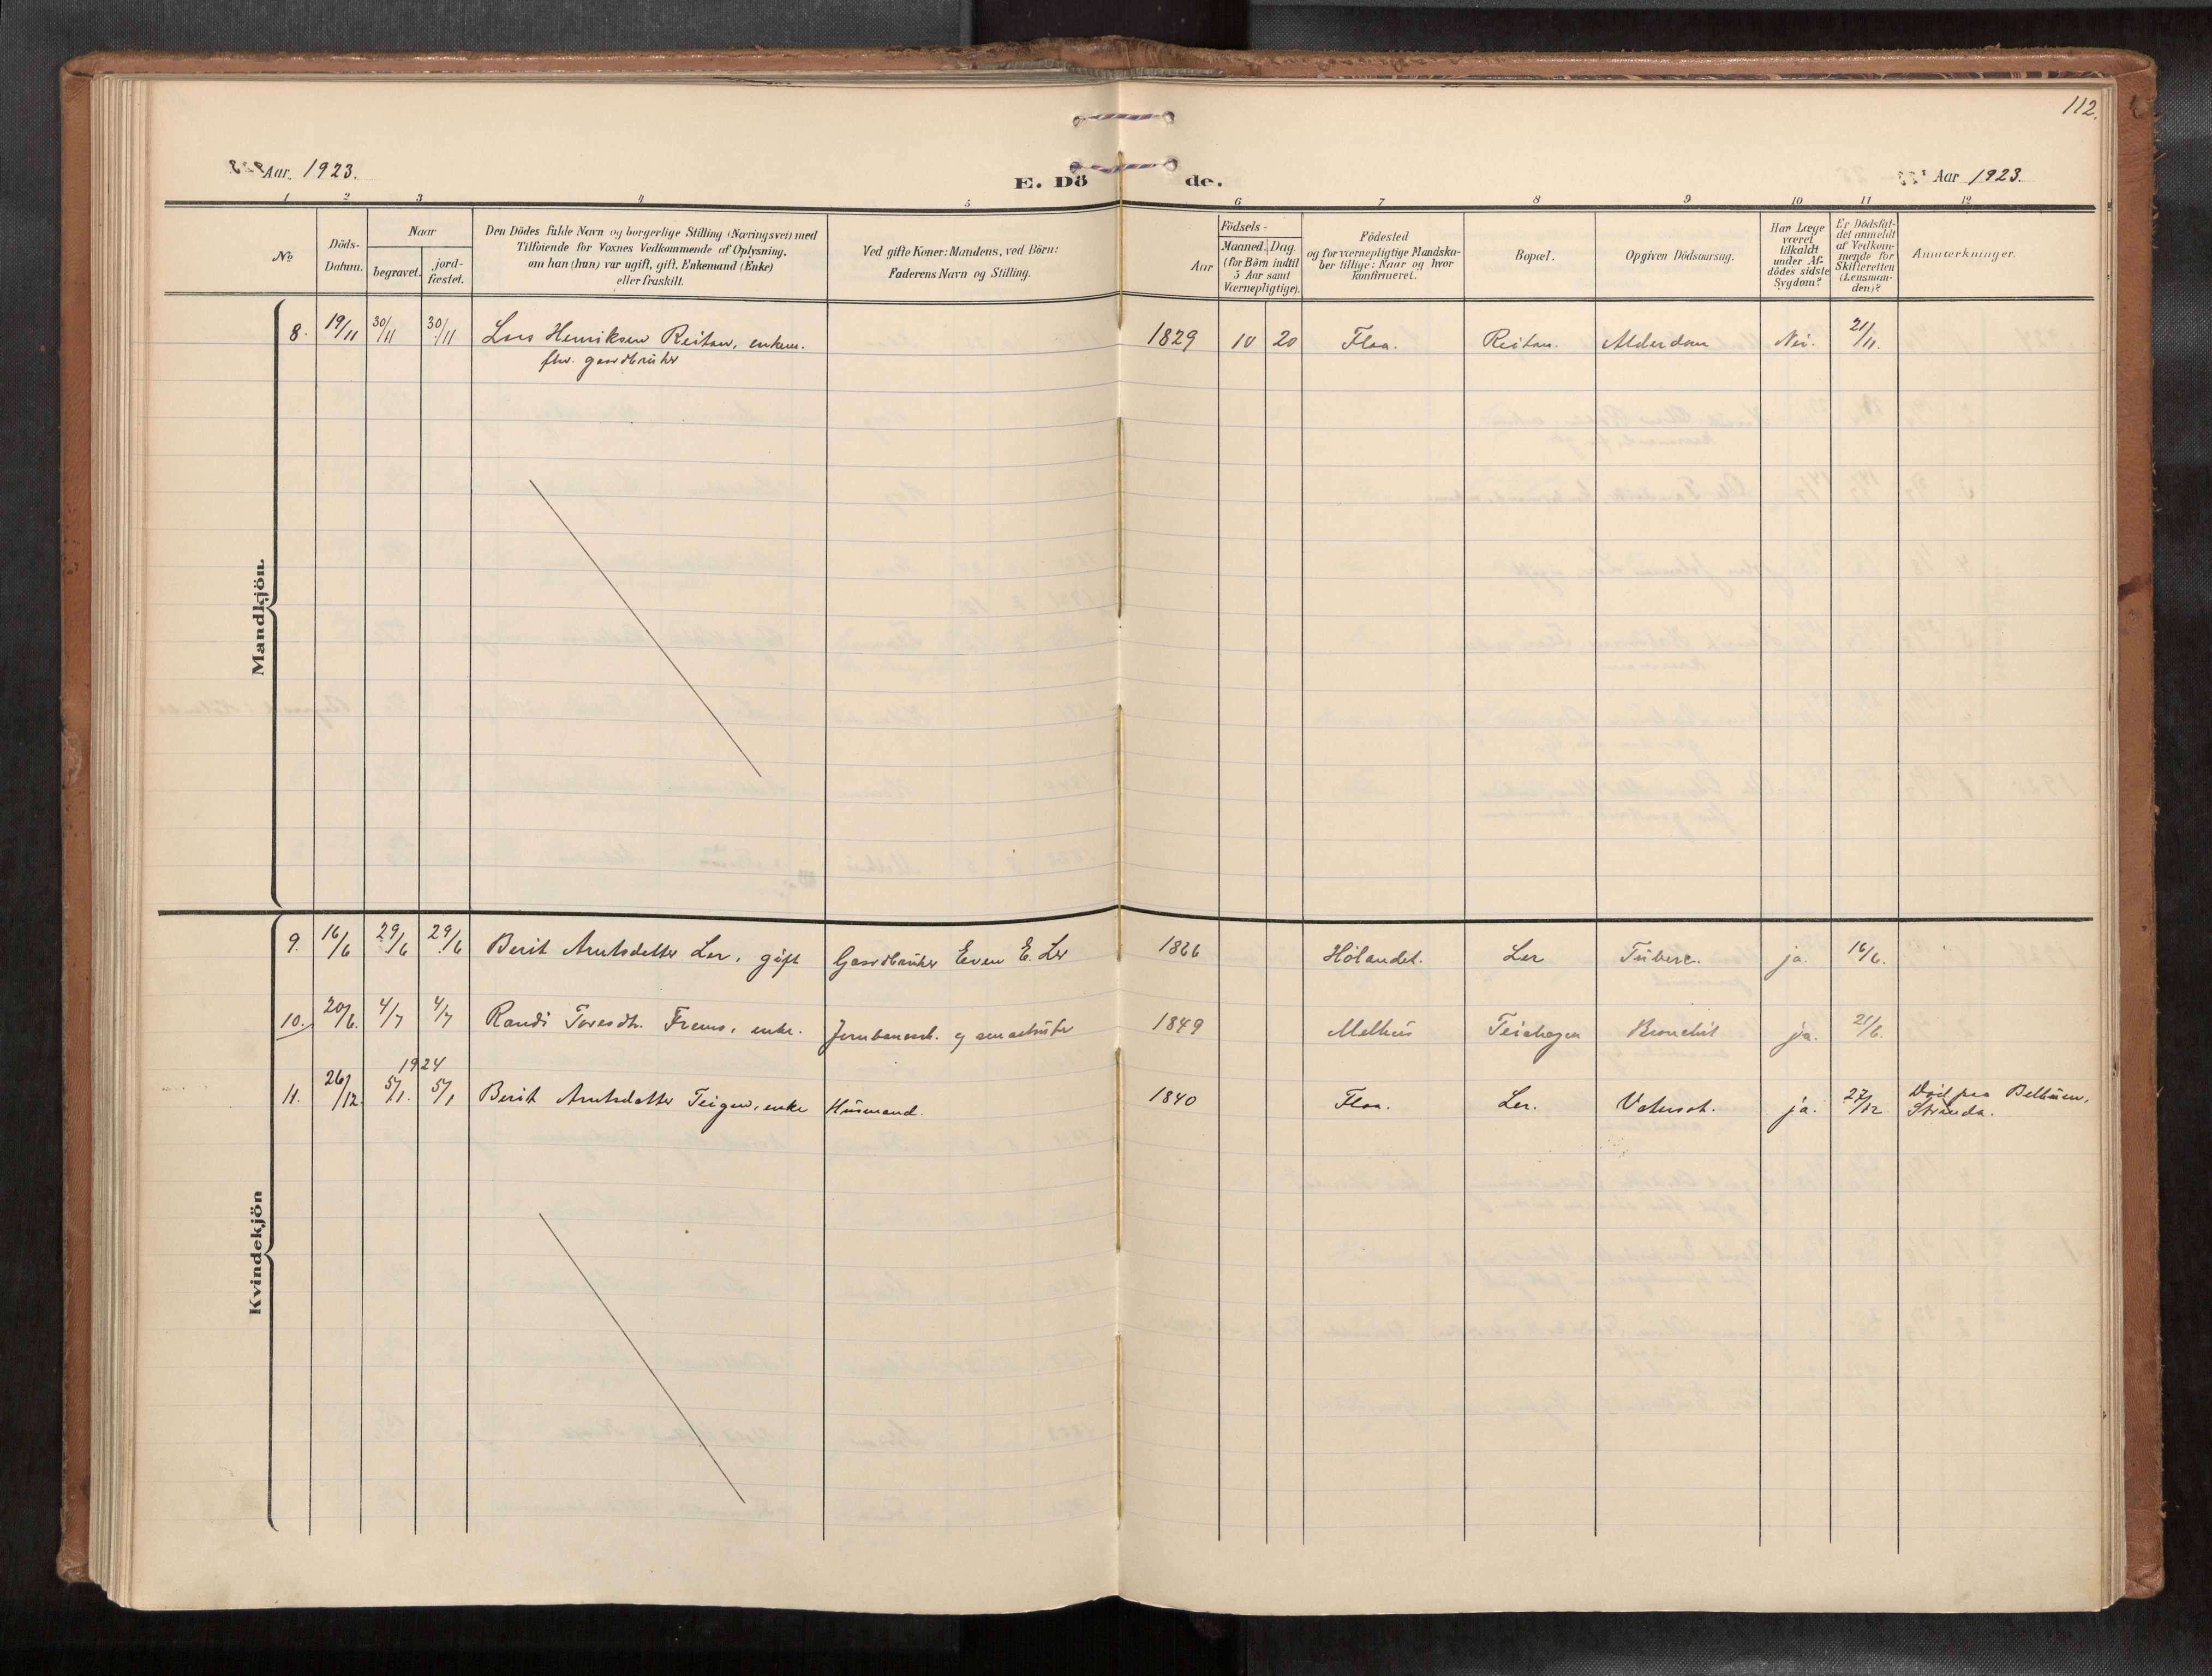 112.
Aar 1923.
E. Dö de.
Aar 1923.
1 2 3 4 5 6 7 8 9 10 11 12
No
Döds-
Datum.
Naar
begravet.
jord-
fæstet.
Den Dödes fulde Navn og borgerlige Stilling (Næringsvei) med
Tilföiende for Voxnes Vedkommende af Oplysning,
om han (hun) var ugift, gift, Enkemand (Enke)
eller fraskilt.
Ved gifte Koner: Mandens, ved Börn:
Faderens Navn og Stilling.
Födsels-
Aar
Maaned.
Dag.
(for Börn indtil
5 Aar samt
Værnepligtige).
Födested
og for værnepligtige Mandska-
ber tillige: Naar og hvor
konfirmeret.
Bopæl.
Opgiven Dödsaarsag.
Har Læge
været
tilkaldt
under Af-
dödes sidste
Sygdom?
Er Dödsfal-
det anmeldt
af Vedkom-
mende for
Skifteretten
(Lensman-
den)?
Anmærkninger.
Mandkjön.
8. 19/11 30/11 30/11 Lars Henriksen Reitan, enkem. 1829 10 20 Flaa. Reitan. Alderdom Nei. 21/11.
fhv. gaardbruker
Kvindekjön
9. 16/6 29/6 29/6 Berit Arntsdatter Ler, gift Gaardbruker Even E. Ler 1866 Hölandet. Ler Tuberc. ja. 16/6.
10. 20/6. 4/7 4/7 Randi Toresdtr. Frems, enke. Jernbanearb. og 1849 Melhus Teiahagen Bronchit ja. 21/6.
1924
11. 26/12. 5/1. 5/1 Berit Arntsdatter Teigen, enke Husmand. 1840 Flaa. Ler. Vatersot. ja. 27/12 Död paa
Strinda.